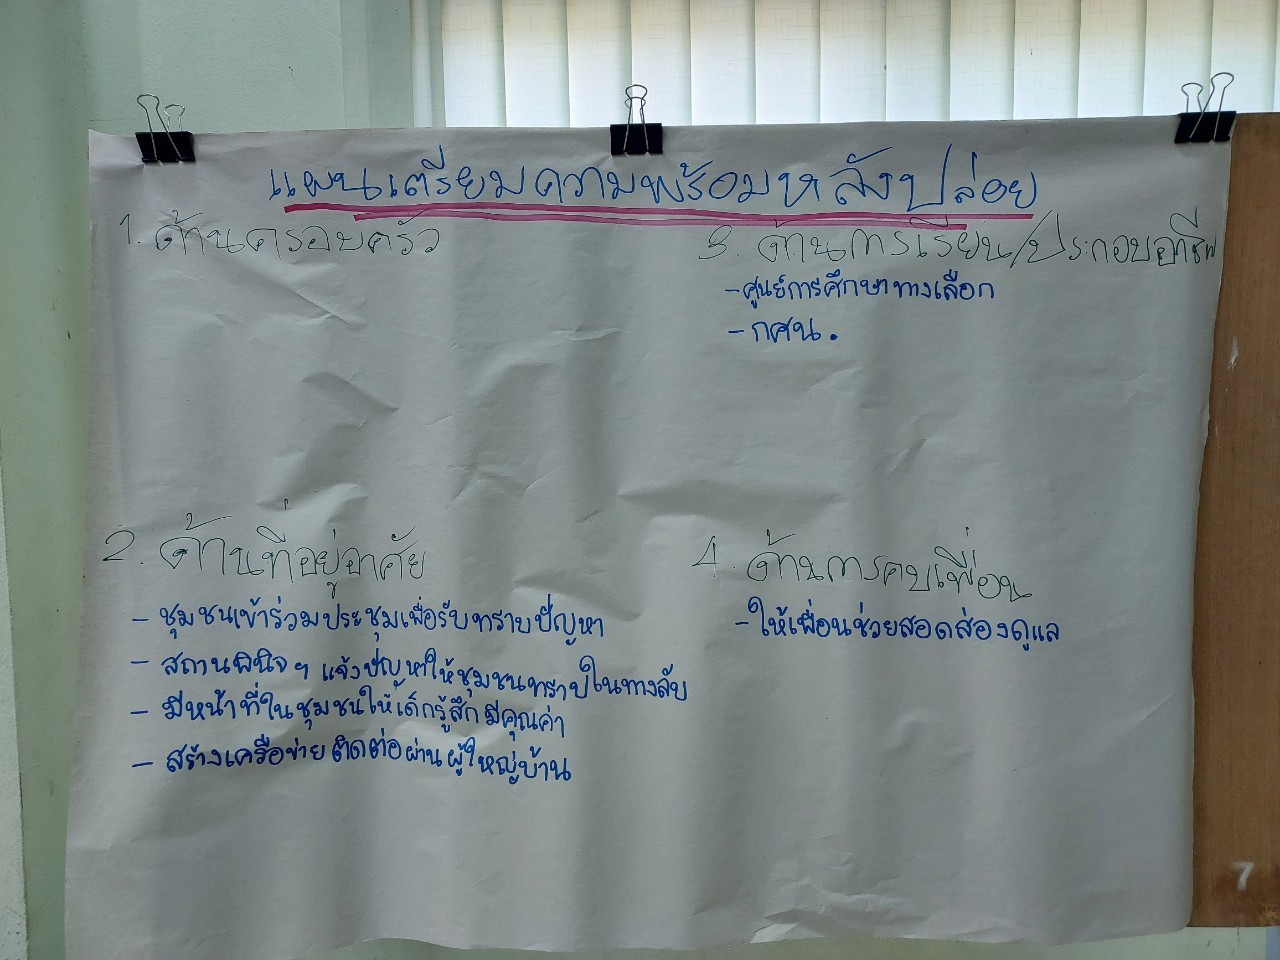 แผนเตรียมความพร้อมหลังปล่อย
1. ด้านครอบครัว
2. ด้านที่อยู่อาศัย
- ชุมชนเข้าร่วมประชุมเพื่อรับทราบปัญหา
- สถานพินิจฯ แจ้งปัญหาให้ชุมชนทราบในทางลับ
- มีหน้าที่ในชุมชนให้เด็กรู้สึกมีคุณค่า
- สร้างเครือข่ายติดต่อผ่านผู้ใหญ่บ้าน
3. ด้านการเรียน/ประกอบอาชีพ
- ศูนย์การศึกษาทางเลือก
- กศน.
4. ด้านการคบเพื่อน
- ให้เพื่อนช่วยสอดส่องดูแล
7